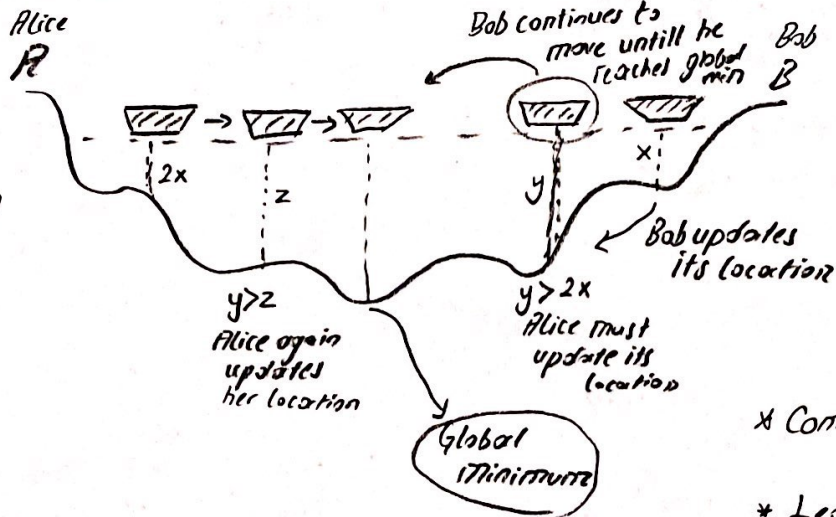 Alice
A
Bob continues to
move untill he
reaches global
min
Bob
B
2x
z
y
x
Bob updates
its location
y>z
Alice again
updates
her location
y>2x
Alice must
update its
location
Global
Minimum
* Con
*